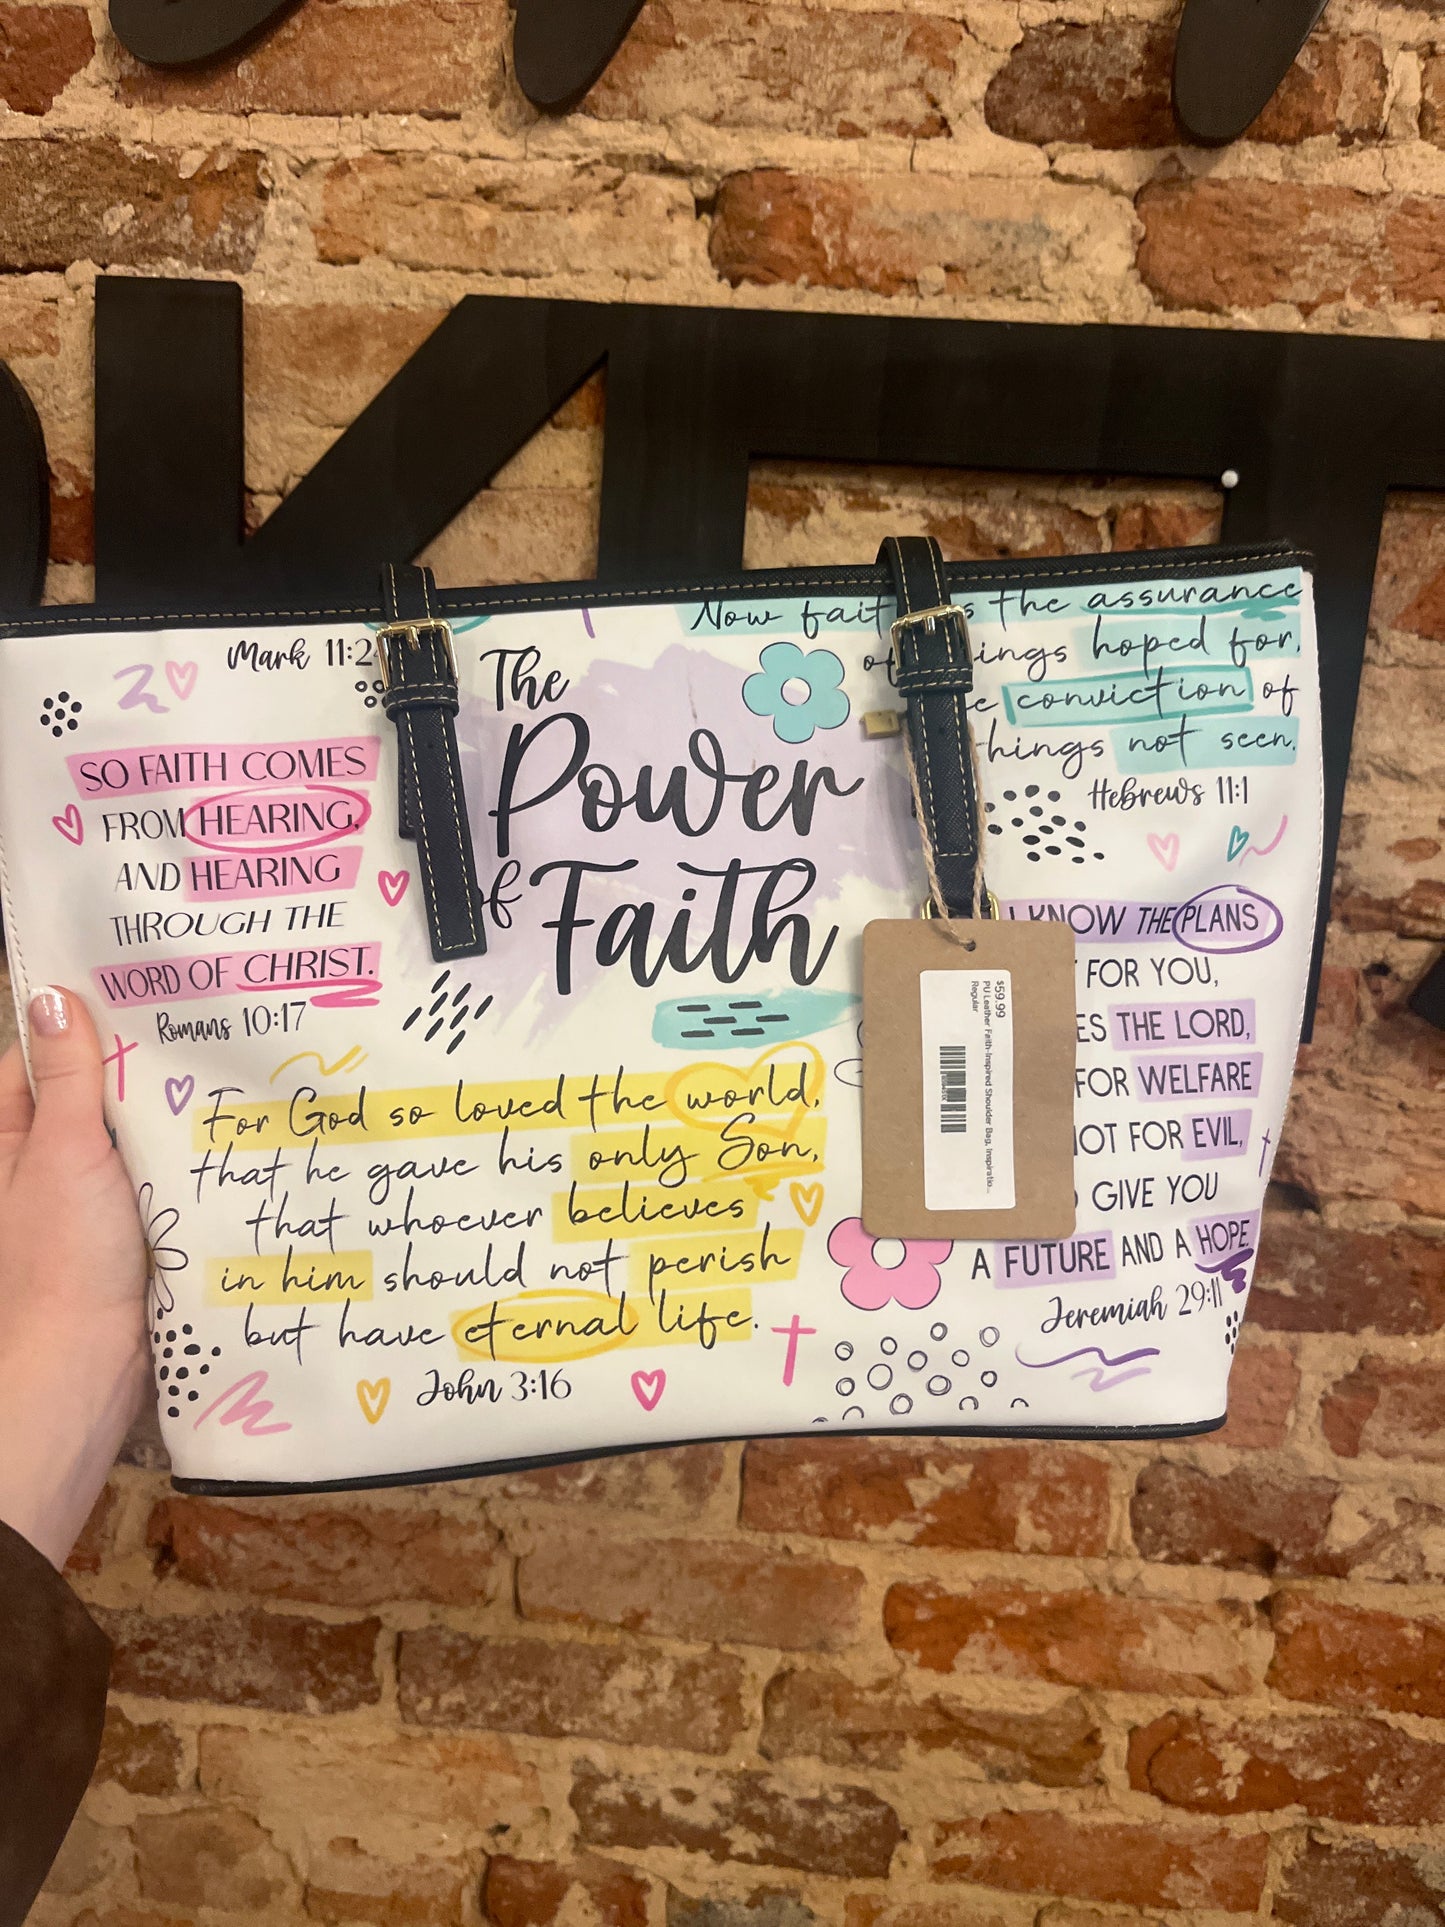 KT
Mark 11:24
The
Power
of
Faith
SO FAITH COMES
FROM HEARING,
AND HEARING
THROUGH THE
WORD OF CHRIST.
Romans 10:17
For God so loved the world,
that he gave his only Son,
that whoever believes
in him should not perish
but have eternal life.
John 3:16
Now fait s the assurance
of ings hoped for,
e conviction of
hings not seen.
Hebrews 11:1
I KNOW THE PLANS
FOR YOU,
ES THE LORD,
FOR WELFARE
NOT FOR EVIL,
GIVE YOU
A FUTURE AND A HOPE.
Jeremiah 29:11
$59.99
PU Leather Faith-Inspired Shoulder Bag, Inspiratio...
Regular